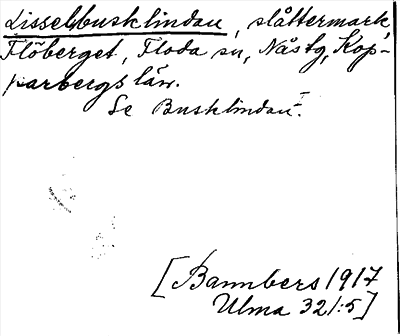 Lisselbusklindan, slåttermark,
Flöberget, Floda sn, Nåstg, Kop-
parbergs län.
Se Busklindan I.
[Bannbers 1917
Ulma 321:5]